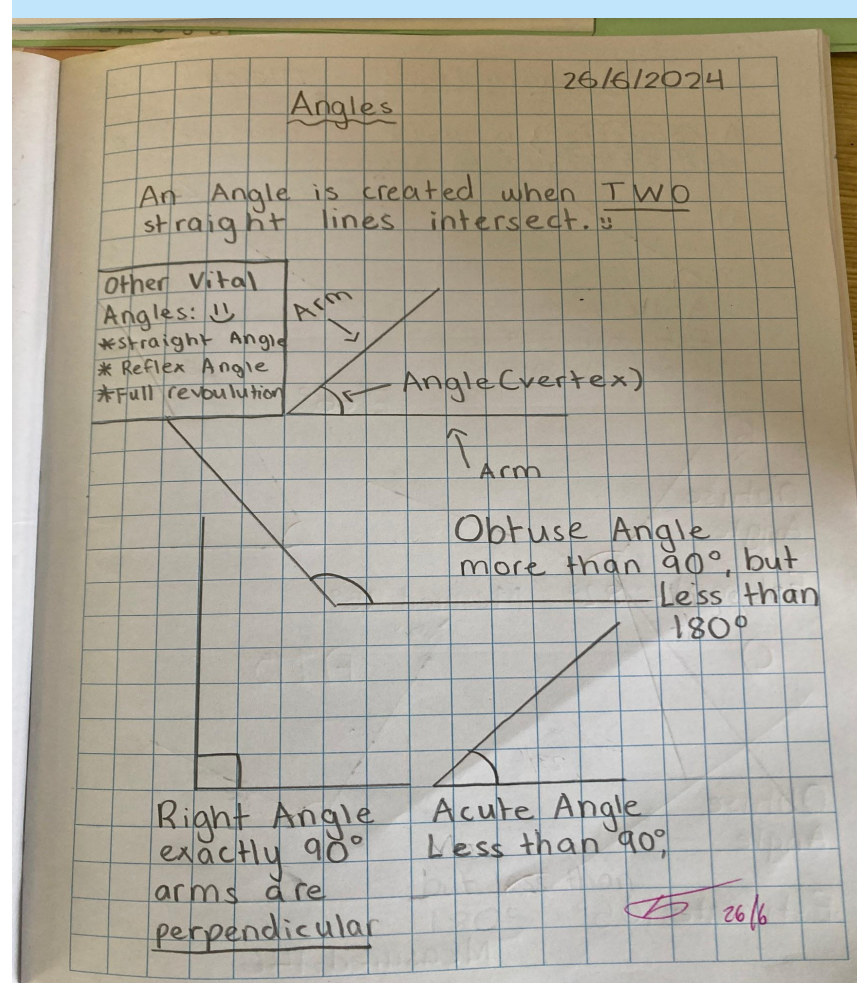 26/6/2024
Angles
An Angle is created when TWO
straight lines intersect.
Other Vital
Angles:
*straight Angle
* Reflex Angle
*Full revoulution
Arm
Angle(vertex)
Arm
Obtuse Angle
more than 90°, but
Less than
180°
Right Angle
exactly 90°
arms are
perpendicular
Acute Angle
Less than 90°,
26/6